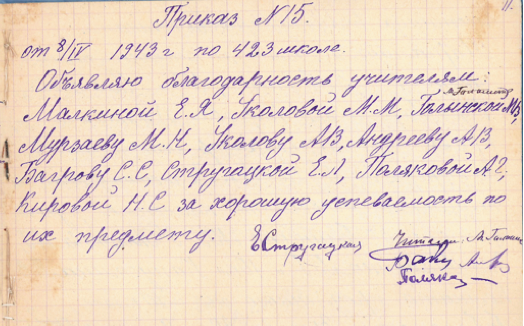 Приказ N 15.
от 8/IV 1943 г по 423 школе.
Объявляю благодарность учителям:
Малкиной Е.Я, Уколовой М.М, Голынской М.З,
Мурзаеву М.Н, Уколову А.В, Андрееву А.В,
Багрову С.С, Стругацкой Е.Л, Поляковой А.Г,
Кировой Н.С за хорошую успеваемость по
их предмету.
ЕСтругацкая